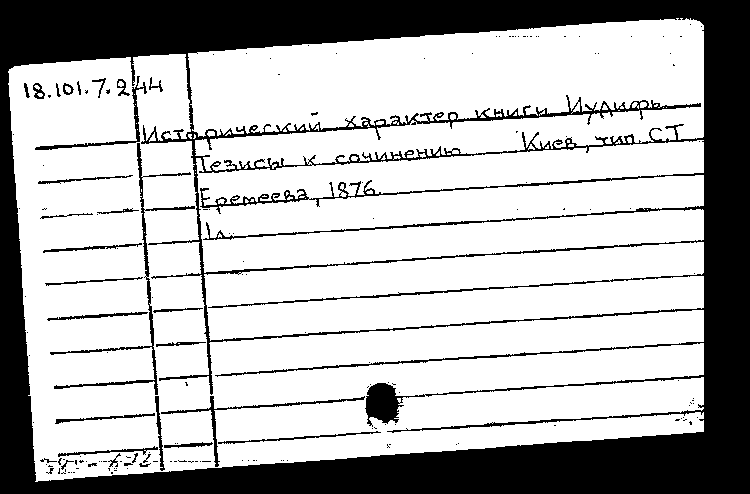 18.101.7.244
Исторический характер книги Иудифь
Тезисы к сочинению Киев, тип. С.Т
Еремеева, 1876.
1л.